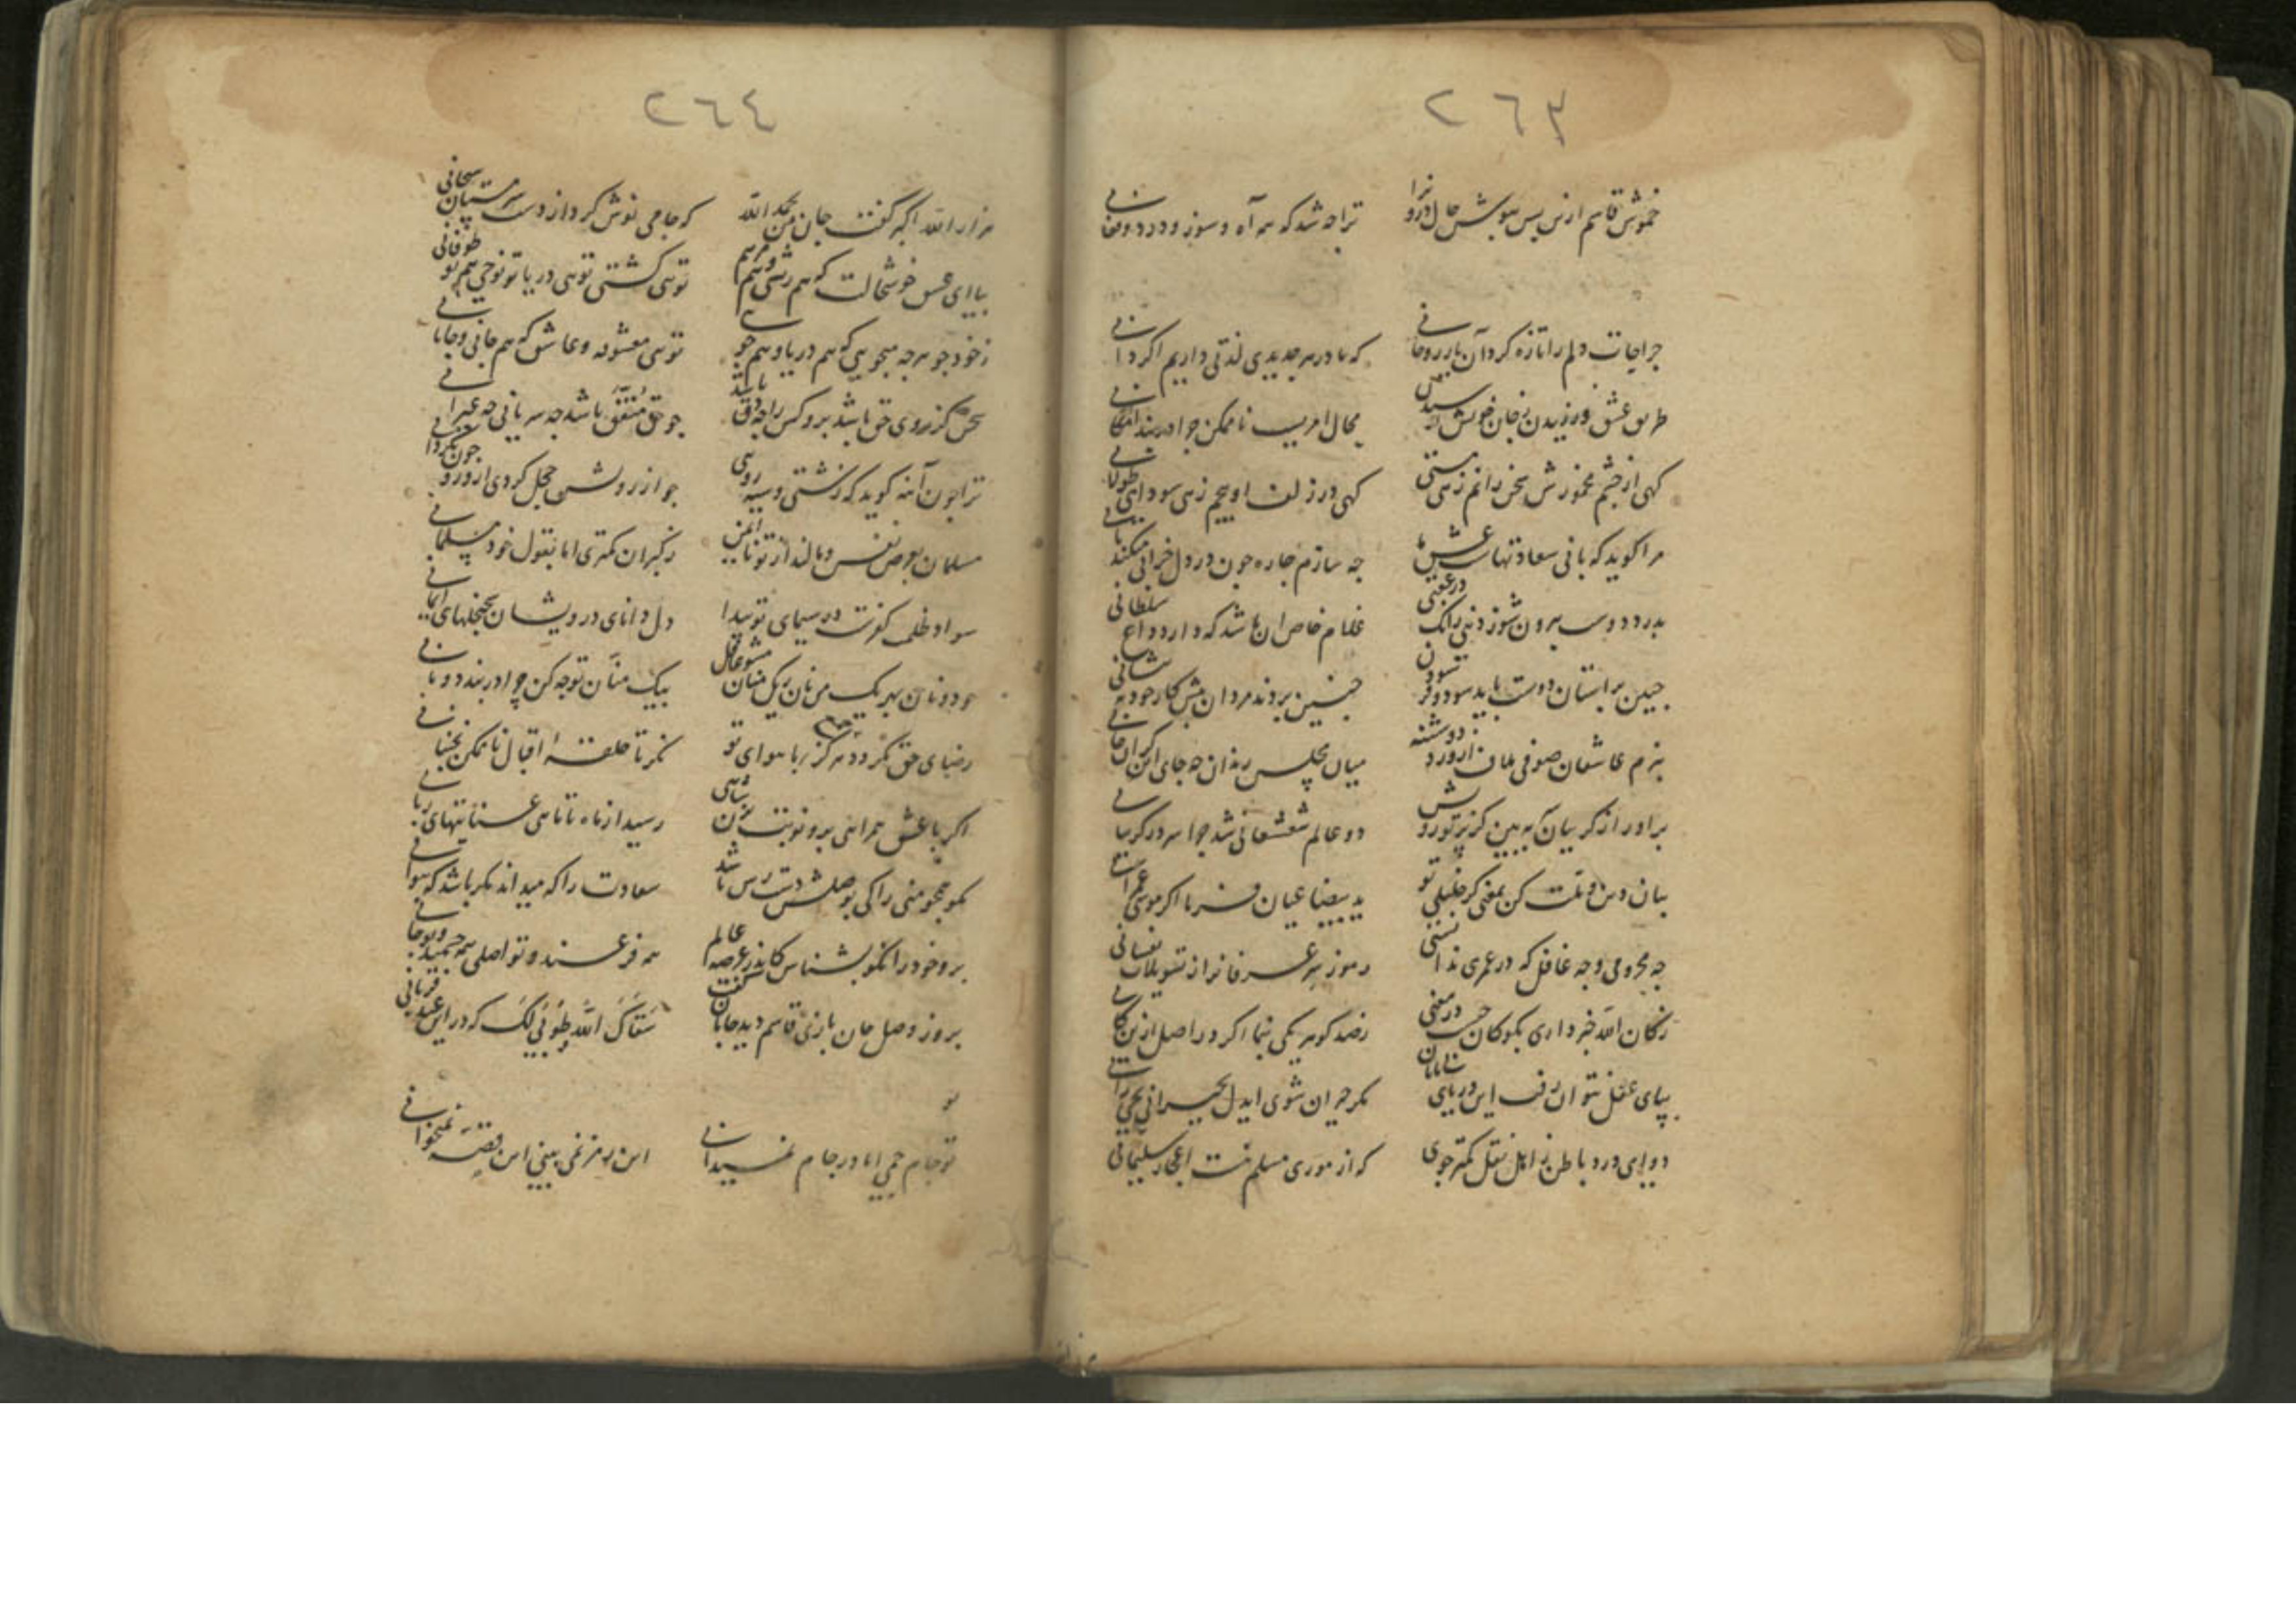 ٢٦٣
خموش قاسم ازین پس بپوش حال درونرا
ترا چه شد که همه آه و سوز و درد و فغانی
جراحات دلم را تازه کرد آن یار روحانی
که ما در هر جدیدی لذتی داریم اگر دانی
طریق عشق ورزیدن ز جان خویش ترسیدن
محال امریست ناممکن چرا در بند امکانی
کهی از چشم مخمورش سخن رانم زهی مستی
کهی در زلف او پیچم زهی سودای طولانی
مرا کوید که بانی سعادتهاست عشق ما
چه سازم چاره چون در دل خرابی میکند بانی
بدرد دوست بیرون شو ز دنیی زانک در عقبی
غلام خاص آن باشد که دارد داغ سلطانی
جبین بر آستان دوست باید سود و فرسودن
چنین بردند مردان پیش کار خود به پیشانی
ببزم عاشقان صوفی ملاف از ورد دوشینه
میان مجلس رندان چه جای این کران جانی
برآور از کریبان آ به بین کز پرتو رویش
دو عالم شعشعانی شد چرا سر در کریبانی
بیان دین و ملت کن بمعنی کر خلیلی تو
ید بیضا عیان فرما اکر موسی عمرانی
چه محرومی و چه غافل که در عمری ندانستی
رموز سر عرفانرا از تسویلات نفسانی
ز کان الله خبر داری بکو کان چیست در معنی
ز صد کوهر یکی بنما اکر در اصل ازین کانی
بپای عقل نتوان رفت این دریای بی پایان
مکر حیران شوی ایدل بحیرانی بحیرانی
دوای درد باطن ز اهل نقل کمتر جوی
که از موری مسلم نیست اعجاز سلیمانی
٢٦٤
هزار الله اکبر کفت جان من بحمد الله
که جامی نوش کرد از دست سرمستان سبحانی
بیا ای عشق خوشحالت که هم ریشی و هم مرهم
تویی کشتی تویی دریا تو نوحی هم تو طوفانی
ز خود جو هر چه میجویی که هم دریا و هم جویی
تویی معشوقه و عاشق که هم جانی و جانانی
سخن کز روی حق باشد بر و کس را چه دق باشد
چو حق متفق باشد چه سریانی چه عبرانی
ترا چون آینه کوید که زشتی و سیه رویی
چو از رویش خجل کردی ازو رو چون بکردانی
مسلمان بو ز نفس و مالند از تو نایمن
ز کبران کمتری اما بقول خود مسلمانی
سواد ظلمت کفرت در سیمای تو پیدا
دل دانای درویشان تجلیهای ایمانی
چو دونان بهر یک من نان ز یک منان مشو غافل
بیک منان توجه کن چرا در بند دو نانی
رضای حق نکردد جمع هرکز با هوای تو
نکر تا حلقه اقبال ناممکن نجنبانی
اکر با عشق همراهی برو نوبت بزن شاهی
رسید از ماه تا ماهی عنایتهای ربانی
بکو محو منی را کی بوصلش دسترس باشد
سعادت را که میداند مکر باشد که بتوانی
برو خود را نکو بشناس کاندر عرصه عالم
همه فرعند و تو اصلی همه جسمند و تو جانی
بروز وصل جان بازی قاسم دید جانان کفت
سقاک الله طوبی لک که در این عید قربانی
تو جام جمی اما در جام نمیدانی
این رمز نمی بینی این قصه نمیخوانی